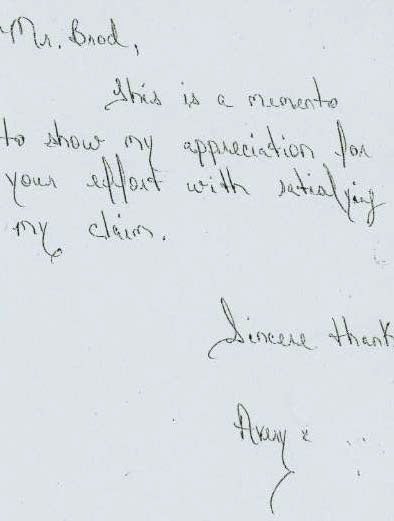 Mr. Brod,
This is a memento
to show my appreciation for
your effort with satisfying
my claim.
Sincere thank
Avery